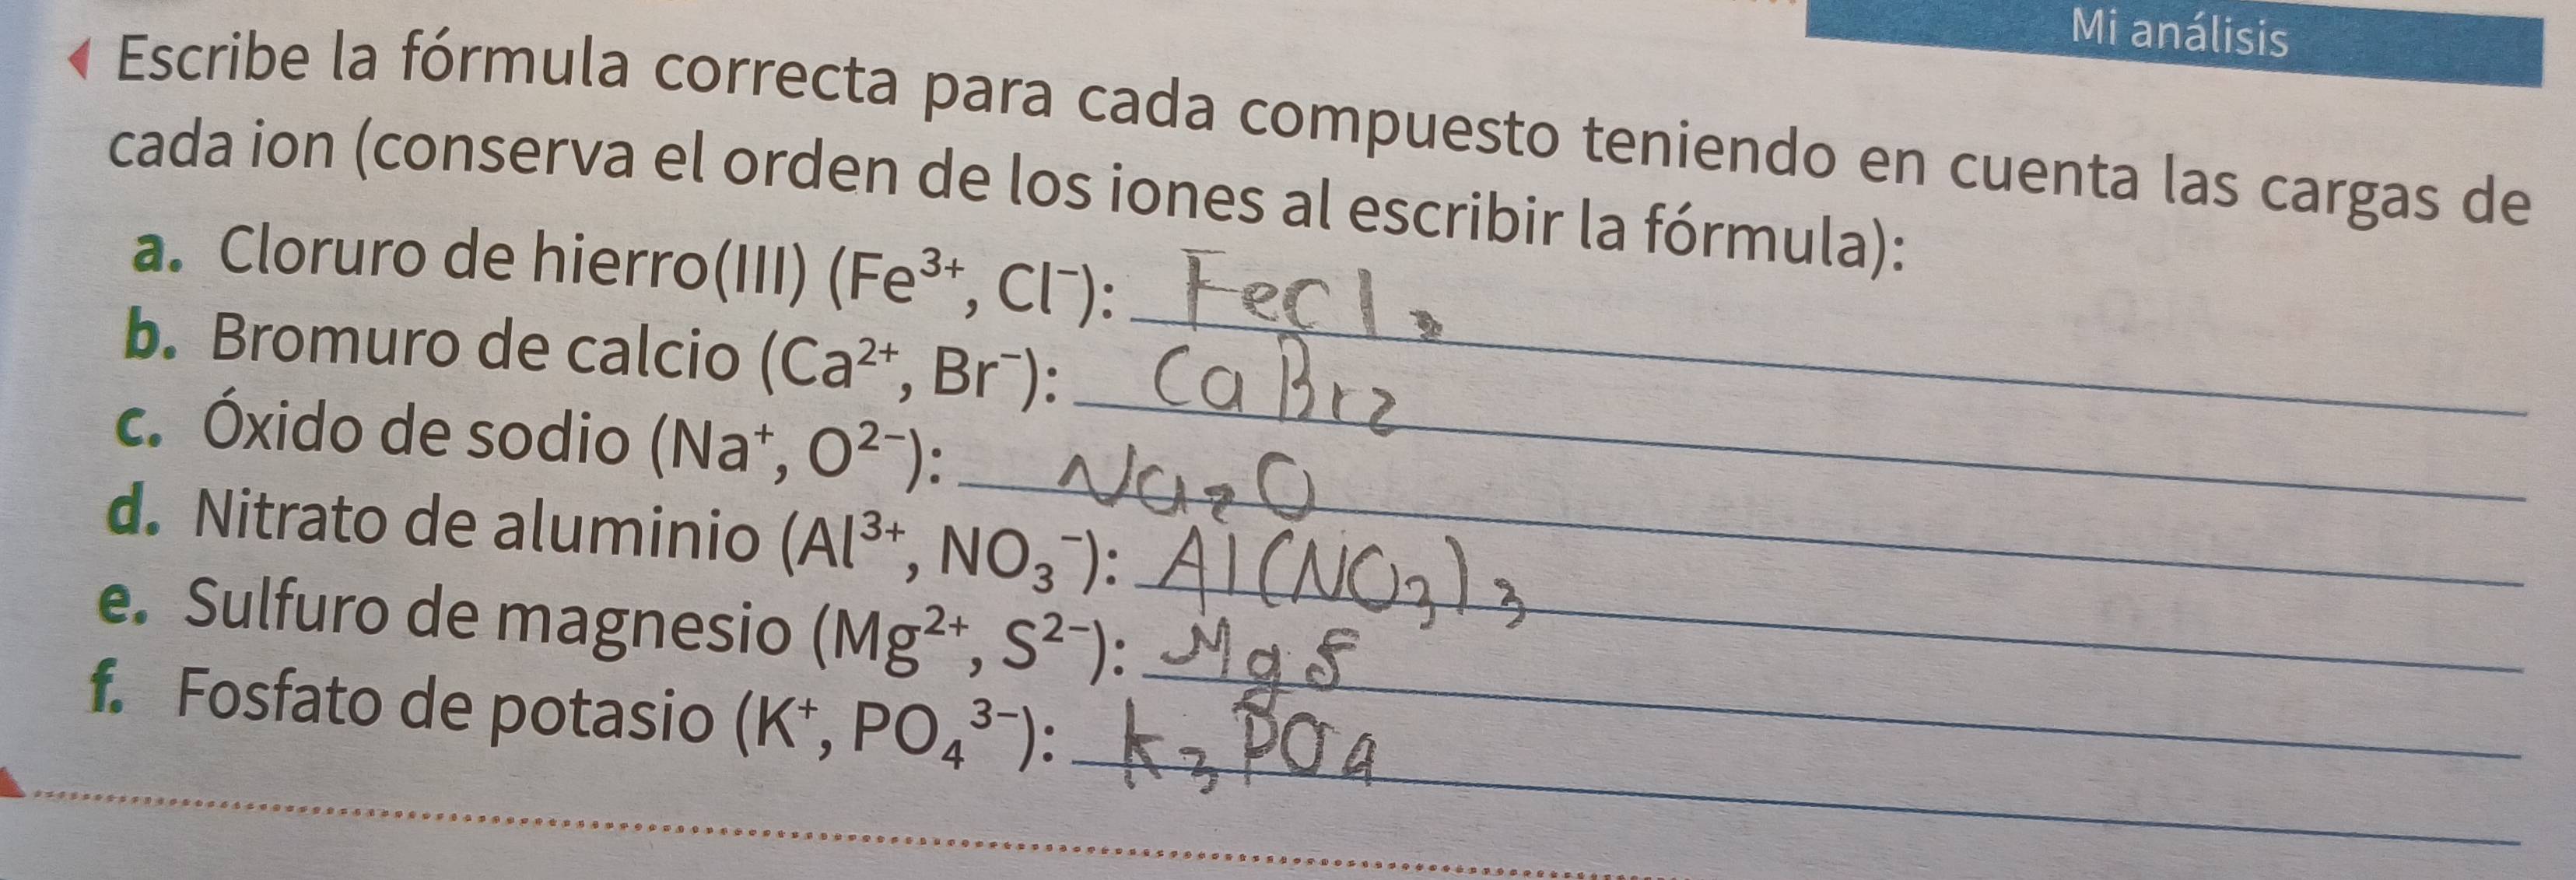 Mi análisis
Escribe la fórmula correcta para cada compuesto teniendo en cuenta las cargas de
cada ion (conserva el orden de los iones al escribir la fórmula):
a. Cloruro de hierro(III) (Fe³⁺, Cl⁻): FeCl
b. Bromuro de calcio (Ca²⁺, Br⁻): CaBr₂
c. Óxido de sodio (Na⁺, O²⁻): Na₂O
d. Nitrato de aluminio (Al³⁺, NO₃⁻): Al(NO₃)₃
e. Sulfuro de magnesio (Mg²⁺, S²⁻): MgS
f. Fosfato de potasio (K⁺, PO₄³⁻): K₃PO₄